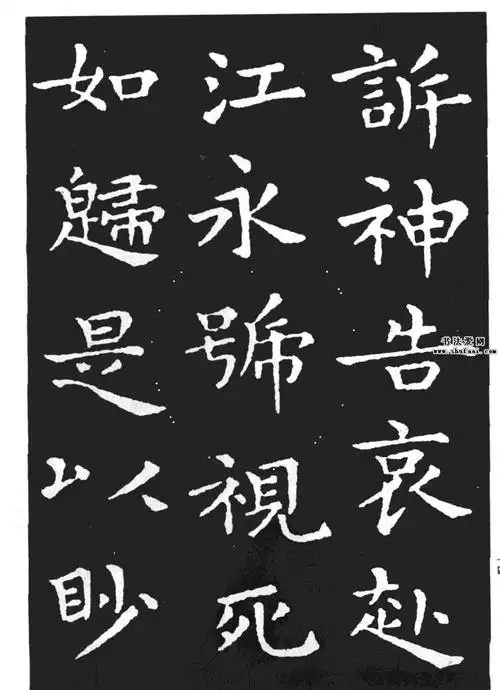 訴神告哀赴
江永號視死
如歸是以眇
书法爱网
www.shufaai.com